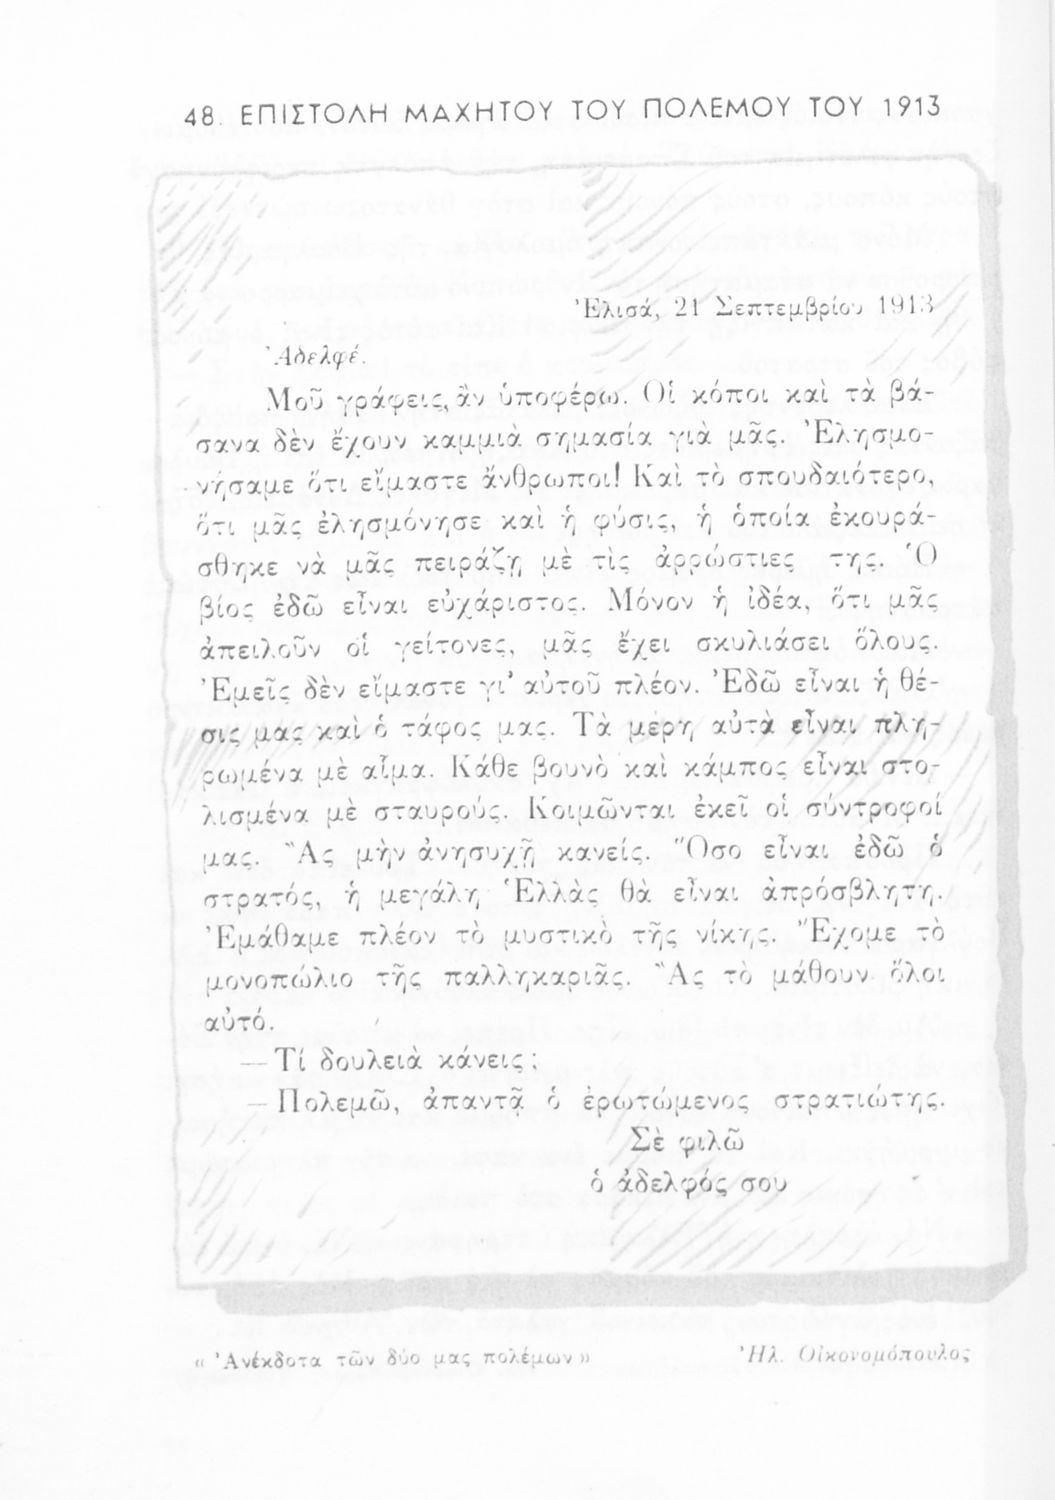 48. ΕΠΙΣΤΟΛΗ ΜΑΧΗΤΟΥ ΤΟΥ ΠΟΛΕΜΟΥ ΤΟΥ 1913
Ἐλισά, 21 Σεπτεμβρίου 1913
Ἀδελφέ.
Μοῦ γράφεις, ἂν ὑποφέρω. Οἱ κόποι καὶ τὰ βά-
σανα δὲν ἔχουν καμμιὰ σημασία γιὰ μᾶς. Ἐλησμο-
νήσαμε ὅτι εἴμαστε ἄνθρωποι! Καὶ τὸ σπουδαιότερο,
ὅτι μᾶς ἐλησμόνησε καὶ ἡ φύσις, ἡ ὁποία ἐκουρά-
σθηκε νὰ μᾶς πειράζῃ μὲ τὶς ἀρρώστιες της. Ὁ
βίος ἐδῶ εἶναι εὐχάριστος. Μόνον ἡ ἰδέα, ὅτι μᾶς
ἀπειλοῦν οἱ γείτονες, μᾶς ἔχει σκυλιάσει ὅλους.
Ἐμεῖς δὲν εἴμαστε γι' αὐτοῦ πλέον. Ἐδῶ εἶναι ἡ θέ-
σις μας καὶ ὁ τάφος μας. Τὰ μέρη αὐτὰ εἶναι πλη-
ρωμένα μὲ αἷμα. Κάθε βουνὸ καὶ κάμπος εἶναι στο-
λισμένα μὲ σταυρούς. Κοιμῶνται ἐκεῖ οἱ σύντροφοί
μας. Ἂς μὴν ἀνησυχῇ κανείς. Ὅσο εἶναι ἐδῶ ὁ
στρατός, ἡ μεγάλη Ἑλλὰς θὰ εἶναι ἀπρόσβλητη.
Ἐμάθαμε πλέον τὸ μυστικὸ τῆς νίκης. Ἔχομε τὸ
μονοπώλιο τῆς παλληκαριᾶς. Ἂς τὸ μάθουν ὅλοι
αὐτό.
— Τί δουλειὰ κάνεις;
— Πολεμῶ, ἀπαντᾷ ὁ ἐρωτώμενος στρατιώτης.
Σὲ φιλῶ
ὁ ἀδελφός σου
« Ἀνέκδοτα τῶν δύο μας πολέμων » Ἠλ. Οἰκονομόπουλος